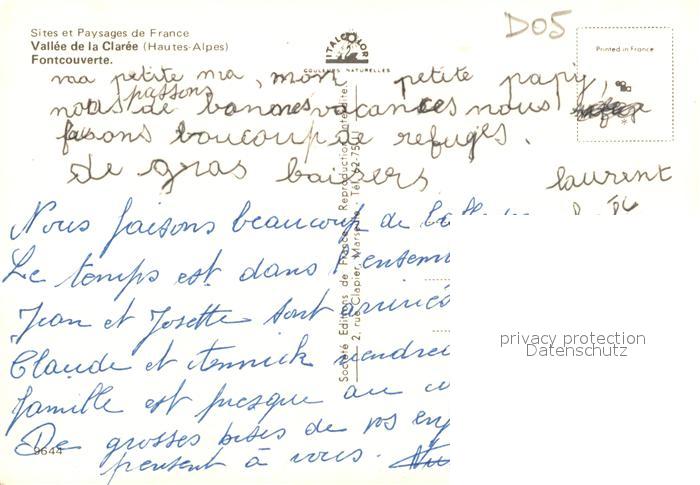 Sites et Paysages de France
Vallée de la Clarée (Hautes-Alpes)
Fontcouverte.
ITALCOLOR
COULEURS NATURELLES
D05
Printed in France
ma petite ma, mon petite papy,
passons
nous de bonnes vacances nous
faisons boucoup de refuges.
de gras baisers laurent
Nous faisons beaucoup de
Le temps est dans l'ensem
Jean et Josette sont arrivés
Claude et Annick viendre
famille est presque au
De grosses bises de vos
pensent à vous.
Société Editions de France Reproduction interdites
2, rue Clapier, Marseille
9644
privacy protection
Datenschutz